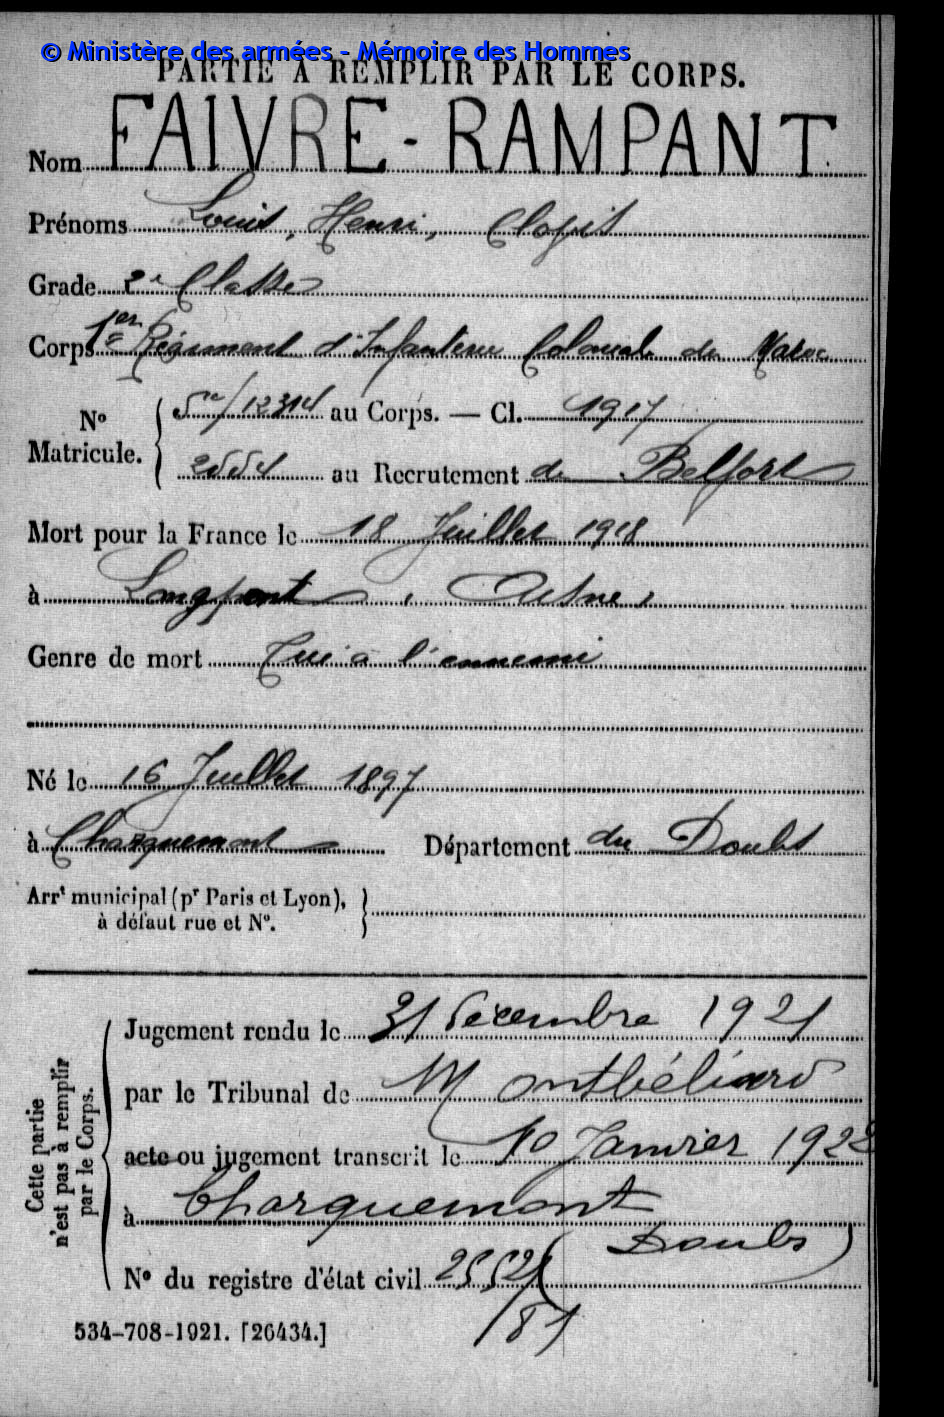 © Ministère des armées - Mémoire des Hommes
PARTIE À REMPLIR PAR LE CORPS.
Nom FAIVRE-RAMPANT
Prénoms Louis, Henri,
Grade 2e Classe
Corps 1er Régiment d'Infanterie Coloniale du Maroc
No Matricule. { /12314 au Corps. — Cl. 1917
au Recrutement de Belfort
Mort pour la France le 18 Juillet 1918
à Longpont, Aisne,
Genre de mort Tué à l'ennemi
Né le 16 Juillet 1897
à Charquemont Département du Doubs
Arrt municipal (pr Paris et Lyon), }
à défaut rue et No.
Cette partie
n'est pas à remplir
par le Corps.
Jugement rendu le 21 décembre 1921
par le Tribunal de Montbéliard
acte ou jugement transcrit le 10 Janvier 1922
à Charquemont
(Doubs)
No du registre d'état civil
534-708-1921. [26434.]